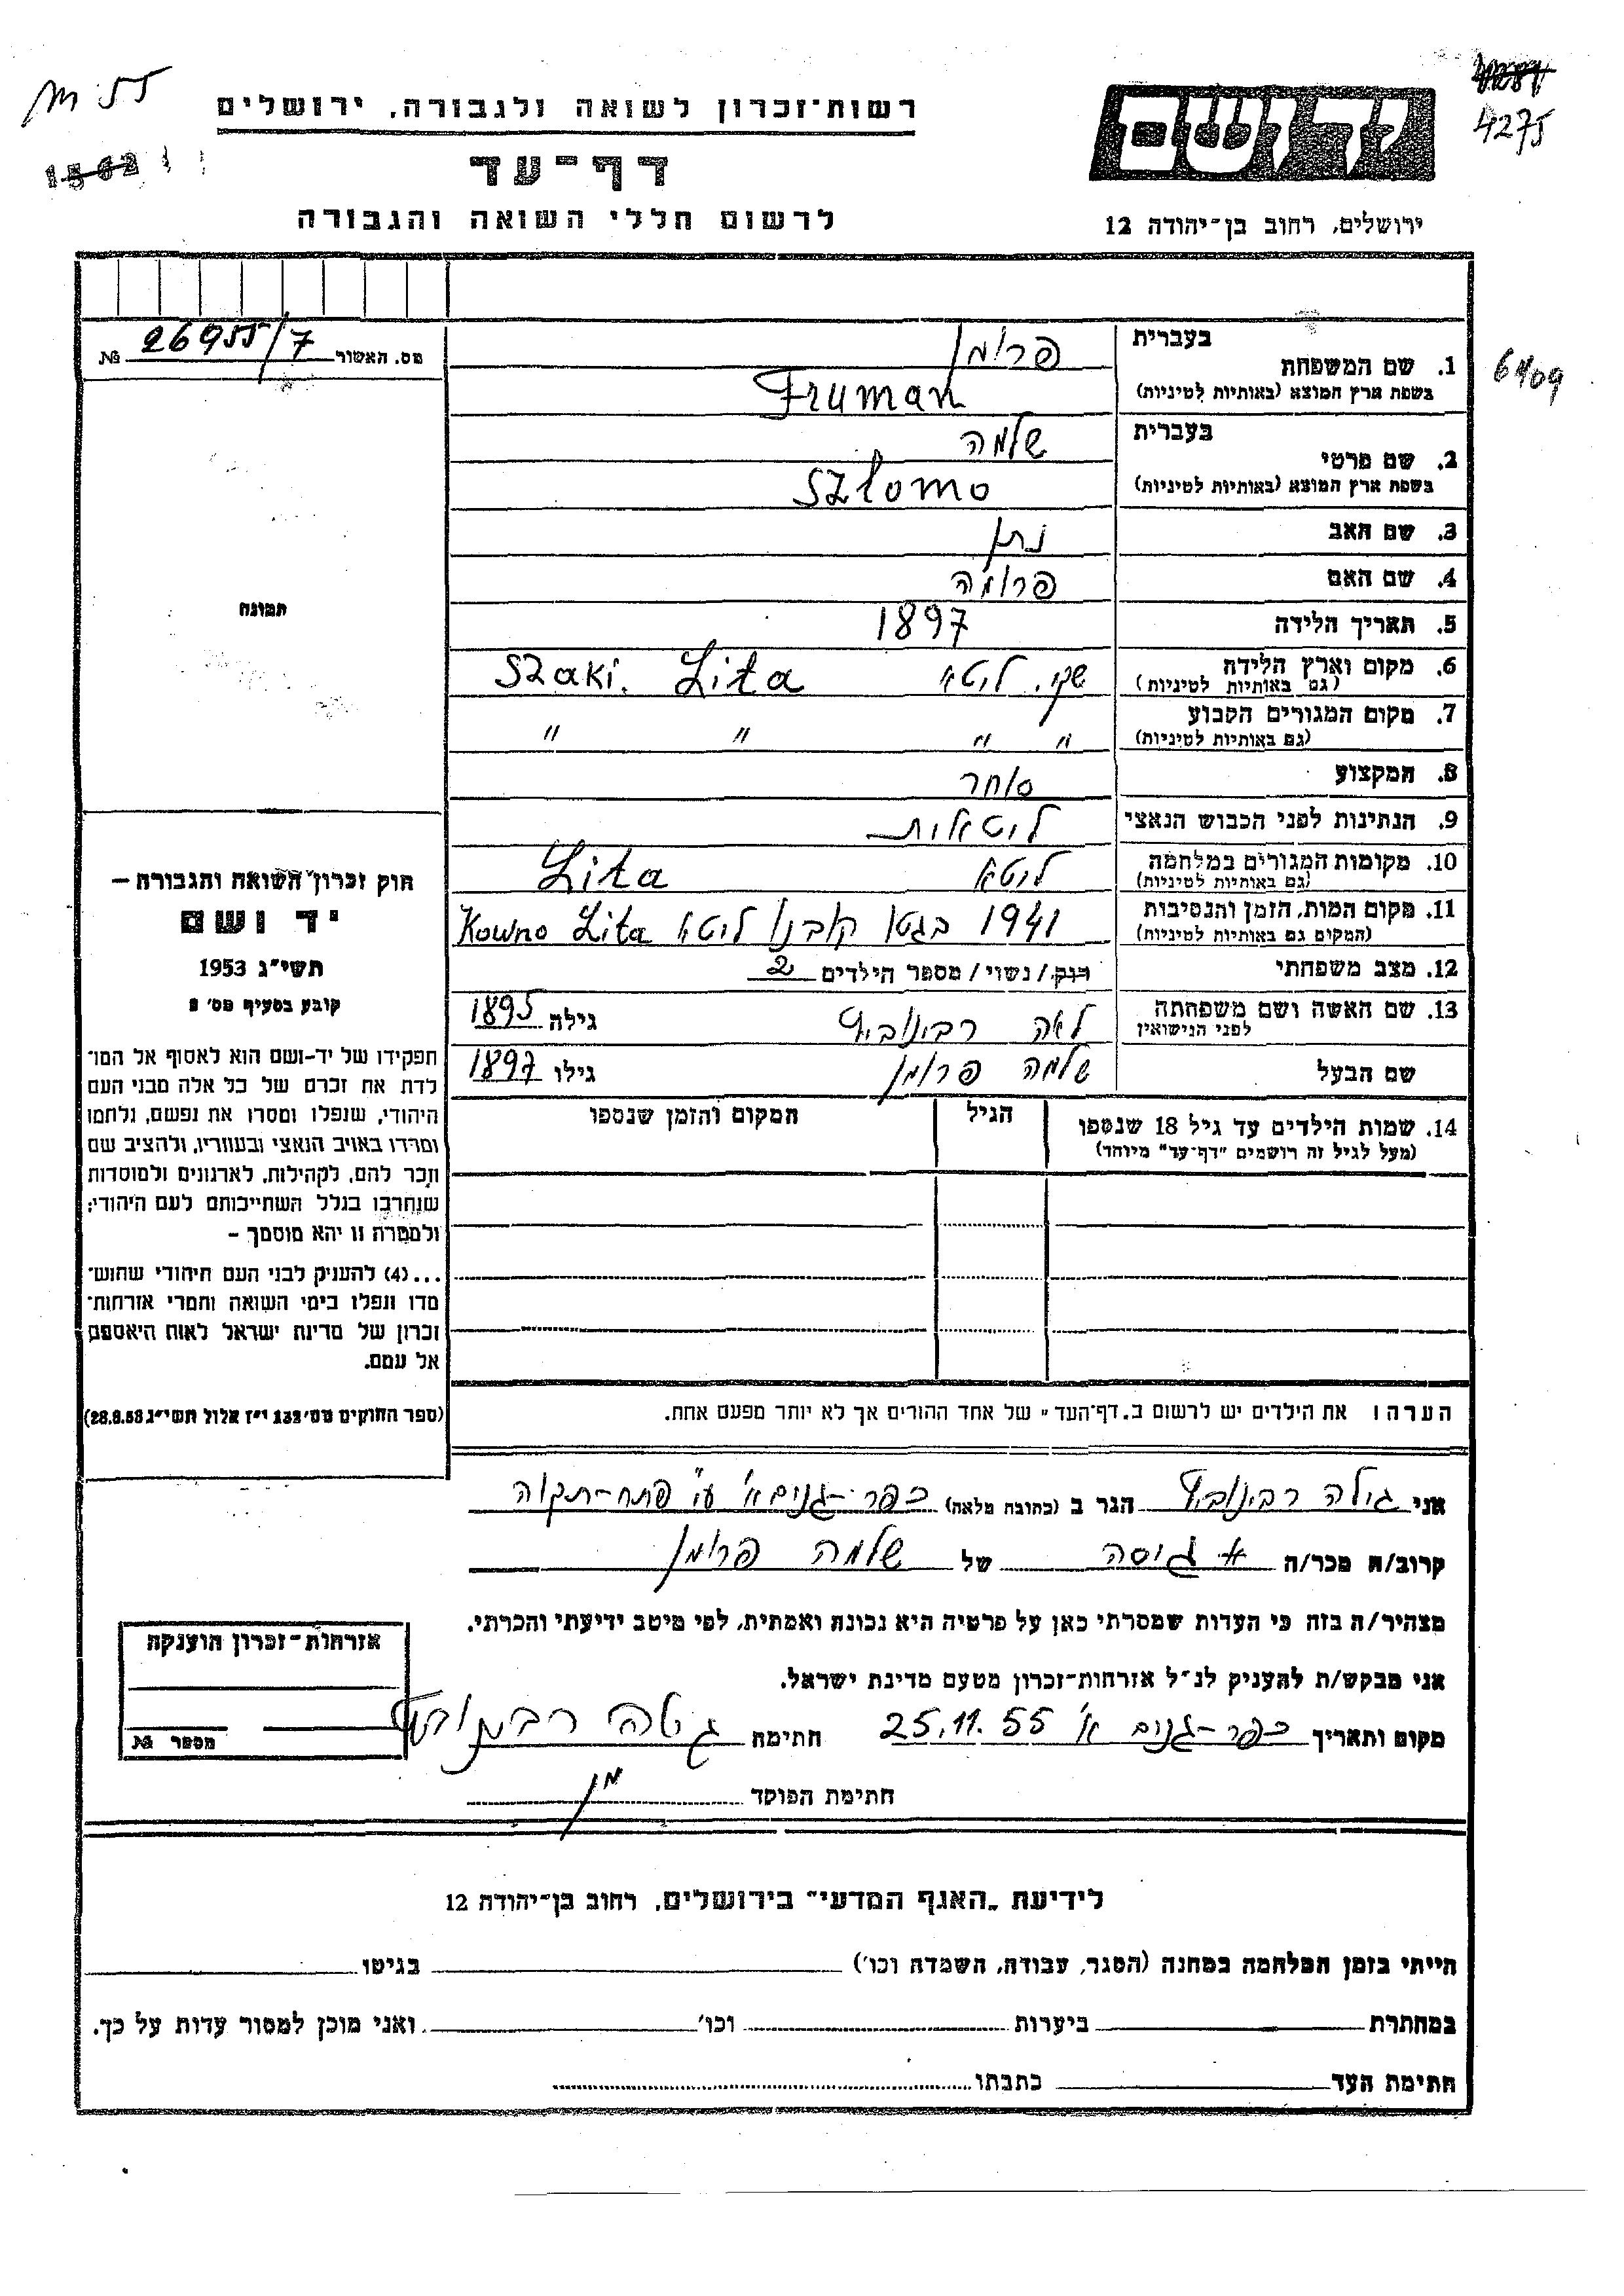 m 55
4275
רשות־זכרון לשואה ולגבורה, ירושלים
יד ושם
דף־עד
לרשום חללי השואה והגבורה
ירושלים, רחוב בן־יהודה 12
מס. האשור 26955/7 №
6409
בעברית פרומן
1. שם המשפחה
בשפת ארץ המוצא (באותיות לטיניות) Fruman
בעברית שלמה
2. שם פרטי
בשפת ארץ המוצא (באותיות לטיניות) Szlomo
3. שם האב נתן
4. שם האם פרומה
5. תאריך הלידה 1897
6. מקום וארץ הלידה שקי. ליטא Szaki. Lita
(גם באותיות לטיניות)
7. מקום המגורים הקבוע " " " "
(גם באותיות לטיניות)
8. המקצוע סוחר
9. הנתינות לפני הכבוש הנאצי ליטאית
10. מקומות המגורים במלחמה ליטא Lita
(גם באותיות לטיניות)
11. מקום המות, הזמן והנסיבות 1941 בגטו קובנו ליטא Kowno Lita
(המקום גם באותיות לטיניות)
12. מצב משפחתי רוק/נשוי/מספר הילדים 2
13. שם האשה ושם משפחתה לאה רבינוביץ גילה 1895
לפני הנישואין
שם הבעל שלמה פרומן גילו 1897
14. שמות הילדים עד גיל 18 שנספו הגיל המקום והזמן שנספו
(מעל לגיל זה רושמים "דף־עד" מיוחד)
תמונה
חוק זכרון השואה והגבורה –
יד ושם
תשי"ג 1953
קובע בסעיף מס' 2
תפקידו של יד-ושם הוא לאסוף אל המו־
לדת את זכרם של כל אלה מבני העם
היהודי, שנפלו ומסרו את נפשם, נלחמו
ומרדו באויב הנאצי ובעוזריו, ולהציב שם
וזכר להם, לקהילות, לארגונים ולמוסדות
שנחרבו בגלל השתייכותם לעם היהודי;
ולמטרה זו יהא מוסמך –
...(4) להעניק לבני העם היהודי שהוש־
מדו ונפלו בימי השואה והמרי אזרחות־
זכרון של מדינת ישראל לאות היאספם
אל עמם.
(ספר החוקים מס' 132 י"ז אלול תשי"ג 28.8.53)
הערה: את הילדים יש לרשום ב„דף־העד" של אחד ההורים אך לא יותר מפעם אחת.
אני רבינוביץ הגר ב (כתובת מלאה) כפר-גנים א' ע"י פתח-תקוה
קרוב/ה מכר/ה גיסה של שלמה פרומן
מצהיר/ה בזה כי העדות שמסרתי כאן על פרטיה היא נכונה ואמתית, לפי מיטב ידיעתי והכרתי.
אני מבקש/ת להעניק לנ"ל אזרחות־זכרון מטעם מדינת ישראל.
מקום ותאריך כפר-גנים א' 25.11.55 חתימה רבינוביץ
חתימת הפוקד
אזרחות־זכרון הוענקה
מספר №
לידיעת „האגף המדעי" בירושלים, רחוב בן־יהודה 12
הייתי בזמן המלחמה במחנה (הסגר, עבודה, השמדה וכו') בגיטו
במחתרת ביערות וכו' ואני מוכן למסור עדות על כך.
חתימת העד כתבתו